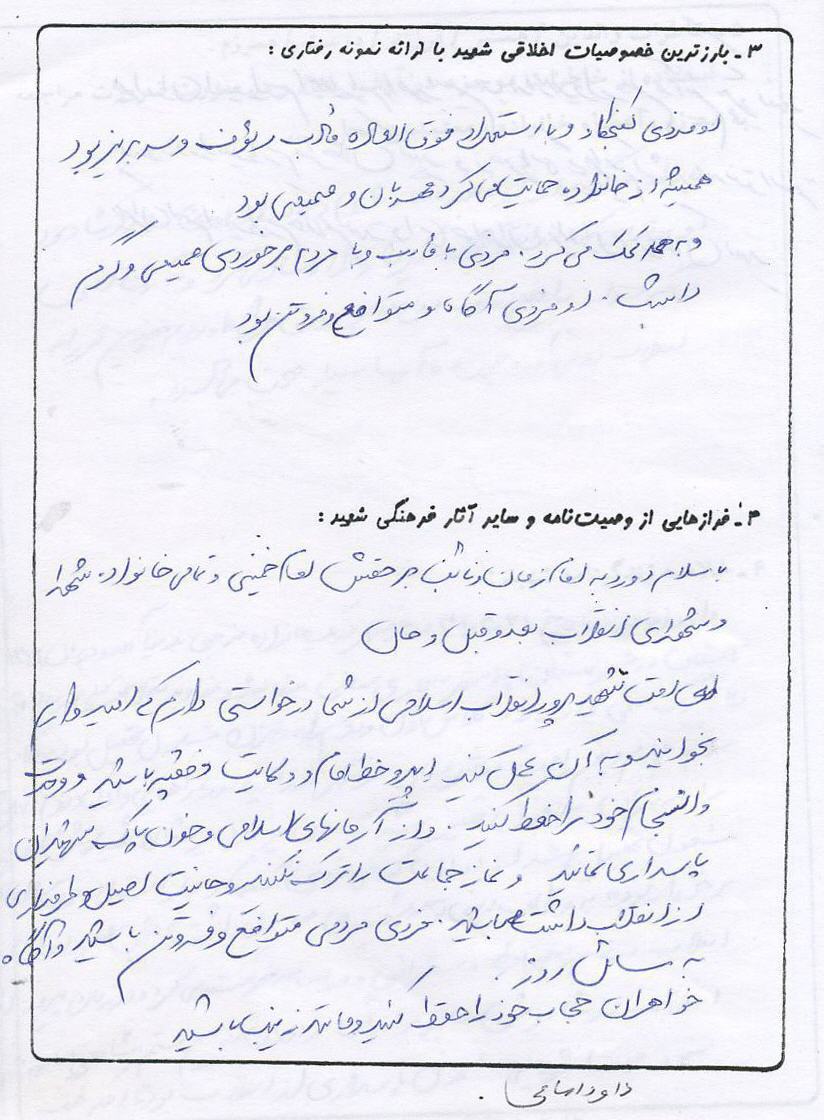 ۳ـ بارزترین خصوصیات اخلاقی شهید با ارائه نمونه رفتاری :
او فردی کنجکاو و با استعداد فوق العاده جالب رئوف و سر بزیر بود
همیشه از خانواده حمایت می کرد مهربان و صمیمی بود
و به همه کمک می کرد. فردی با اقارب و با مردم برخوردی صمیمی و گرم
داشت. او فردی آگاه و متواضع و فروتن بود
۴ـ فرازهایی از وصیت‌نامه و سایر آثار فرهنگی شهید :
با سلام و درود به امام زمان و نائب بر حقش امام خمینی و تمامی خانواده شهدا
و شهدای انقلاب بعد و قبل و حال
ای امت شهید پرور انقلاب اسلامی از شما درخواستی دارم که امیدوارم
بخوانید و به آن عمل کنید پیرو خط امام و ولایت فقیه باشید و وحدت
و انسجام خود را حفظ کنید. و از آرمانهای اسلامی و خون پاک شهیدان
پاسداری نمائید و نماز جماعت را ترک نکنید روحانیت اصیل و طرفداری
از انقلاب داشته باشید. فردی مردمی متواضع و فروتن باشید و آگاه
به مسائل روز.
خواهران حجاب خود را حفظ کنید و مانند زینب باشید
داود